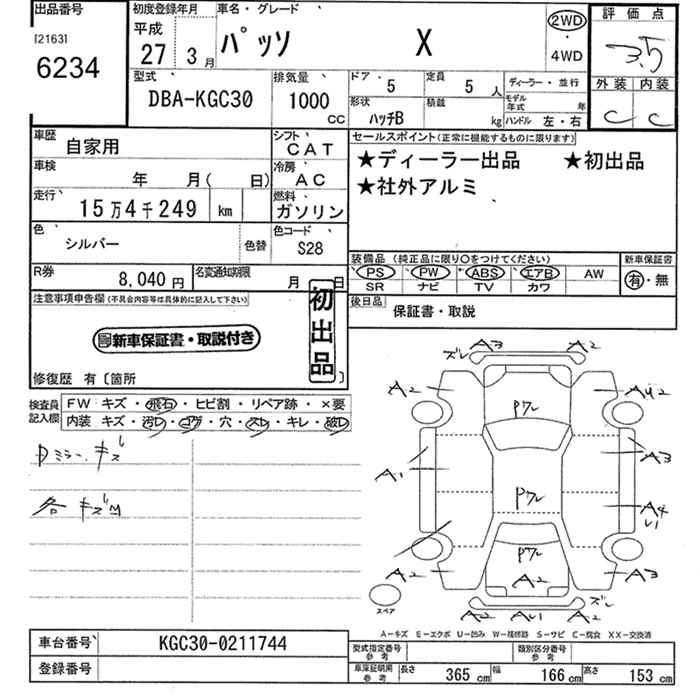 出品番号
[2163]
6234
初度登録年月
平成
27 3月
車名・グレード
パッソ X
2WD
・
4WD
評価点
3.5
外装 内装
C C
型式
DBA-KGC30
排気量
1000
CC
ドア 5
定員 5 人
ディーラー・並行
形状 ハッチB
積載 kg
モデル年式 年
ハンドル 左・右
車歴 自家用
シフト CAT
車検 年 月( 日)
冷房 AC
走行 15万4千249 km
燃料 ガソリン
色 シルバー
色替
色コード S28
セールスポイント(正常に機能するものに限ります)
★ディーラー出品 ★初出品
★社外アルミ
装備品(純正品に限り○をつけてください)
新車保証書
PS PW ABS エアB AW
SR ナビ TV カワ
有・無
R券 8,040円
名変通知期限 月 日
後日品 保証書・取説
注意事項申告欄(不具合内容等は具体的に記入して下さい)
新車保証書・取説付き
初出品
修復歴 有〔箇所 〕
検査員記入欄
FW キズ・飛石・ヒビ割・リペア跡・×要
内装 キズ・汚レ・コゲ・穴・スレ・キレ・破レ
Dミラーキズ
各キズM
A3 A2
ズレ
A2
AU2
Pワレ
A1
A3
Pワレ
A4
U1
Pワレ
A2
A2
A3
A2 AU1 A2
ズレ
スペア
A-キズ E-エクボ U-凹み W-補修跡 S-サビ C-腐食 XX-交換済
車台番号 KGC30-0211744
登録番号
型式指定番号 参考
類別区分番号 参考
車庫証明用参考 長さ 365cm 幅 166cm 高さ 153cm